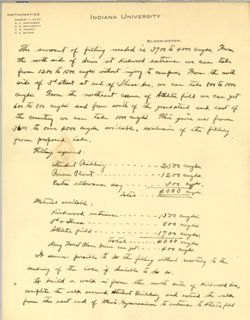 MATHEMATICS
INDIANA UNIVERSITY
BLOOMINGTON,
The amount of filling needed is 3700 to 4000 yards. From
the north side of drive at Kirkwood entrance we can take
from 1200 to 1500 yards without injury to campus. From the north
side of 5th street at end of
we can take 800 to 1000
yards. From the northeast corner of Athletic field we can get
600 to 800 yards and from north of the grandstand and east of
the cemetery we can take 1000 yards. This gives us from
3600 to over 4000 yards available, exclusive of the filling
from proposed lake.
Filling required:
Student Building - - - - 2500 yards.
- - - - 1200 yards.
Extra allowance say - - - 300 yards.
Total - - - - 4000 yards.
Material available:
Kirkwood entrance - - - 1500 yards.
- - - 800 yards.
Athletic field - - - - 1700 yards.
Total - - - - 4000 yards.
yards.
It seems possible to do the filling without resorting to the
making of the lake if desirable to do so.
To build a walk in from the north side of Kirkwood Ave,
complete the walk around Student Building and extend the walk
from the east end of Men's Gymnasium to entrance to Athletic field